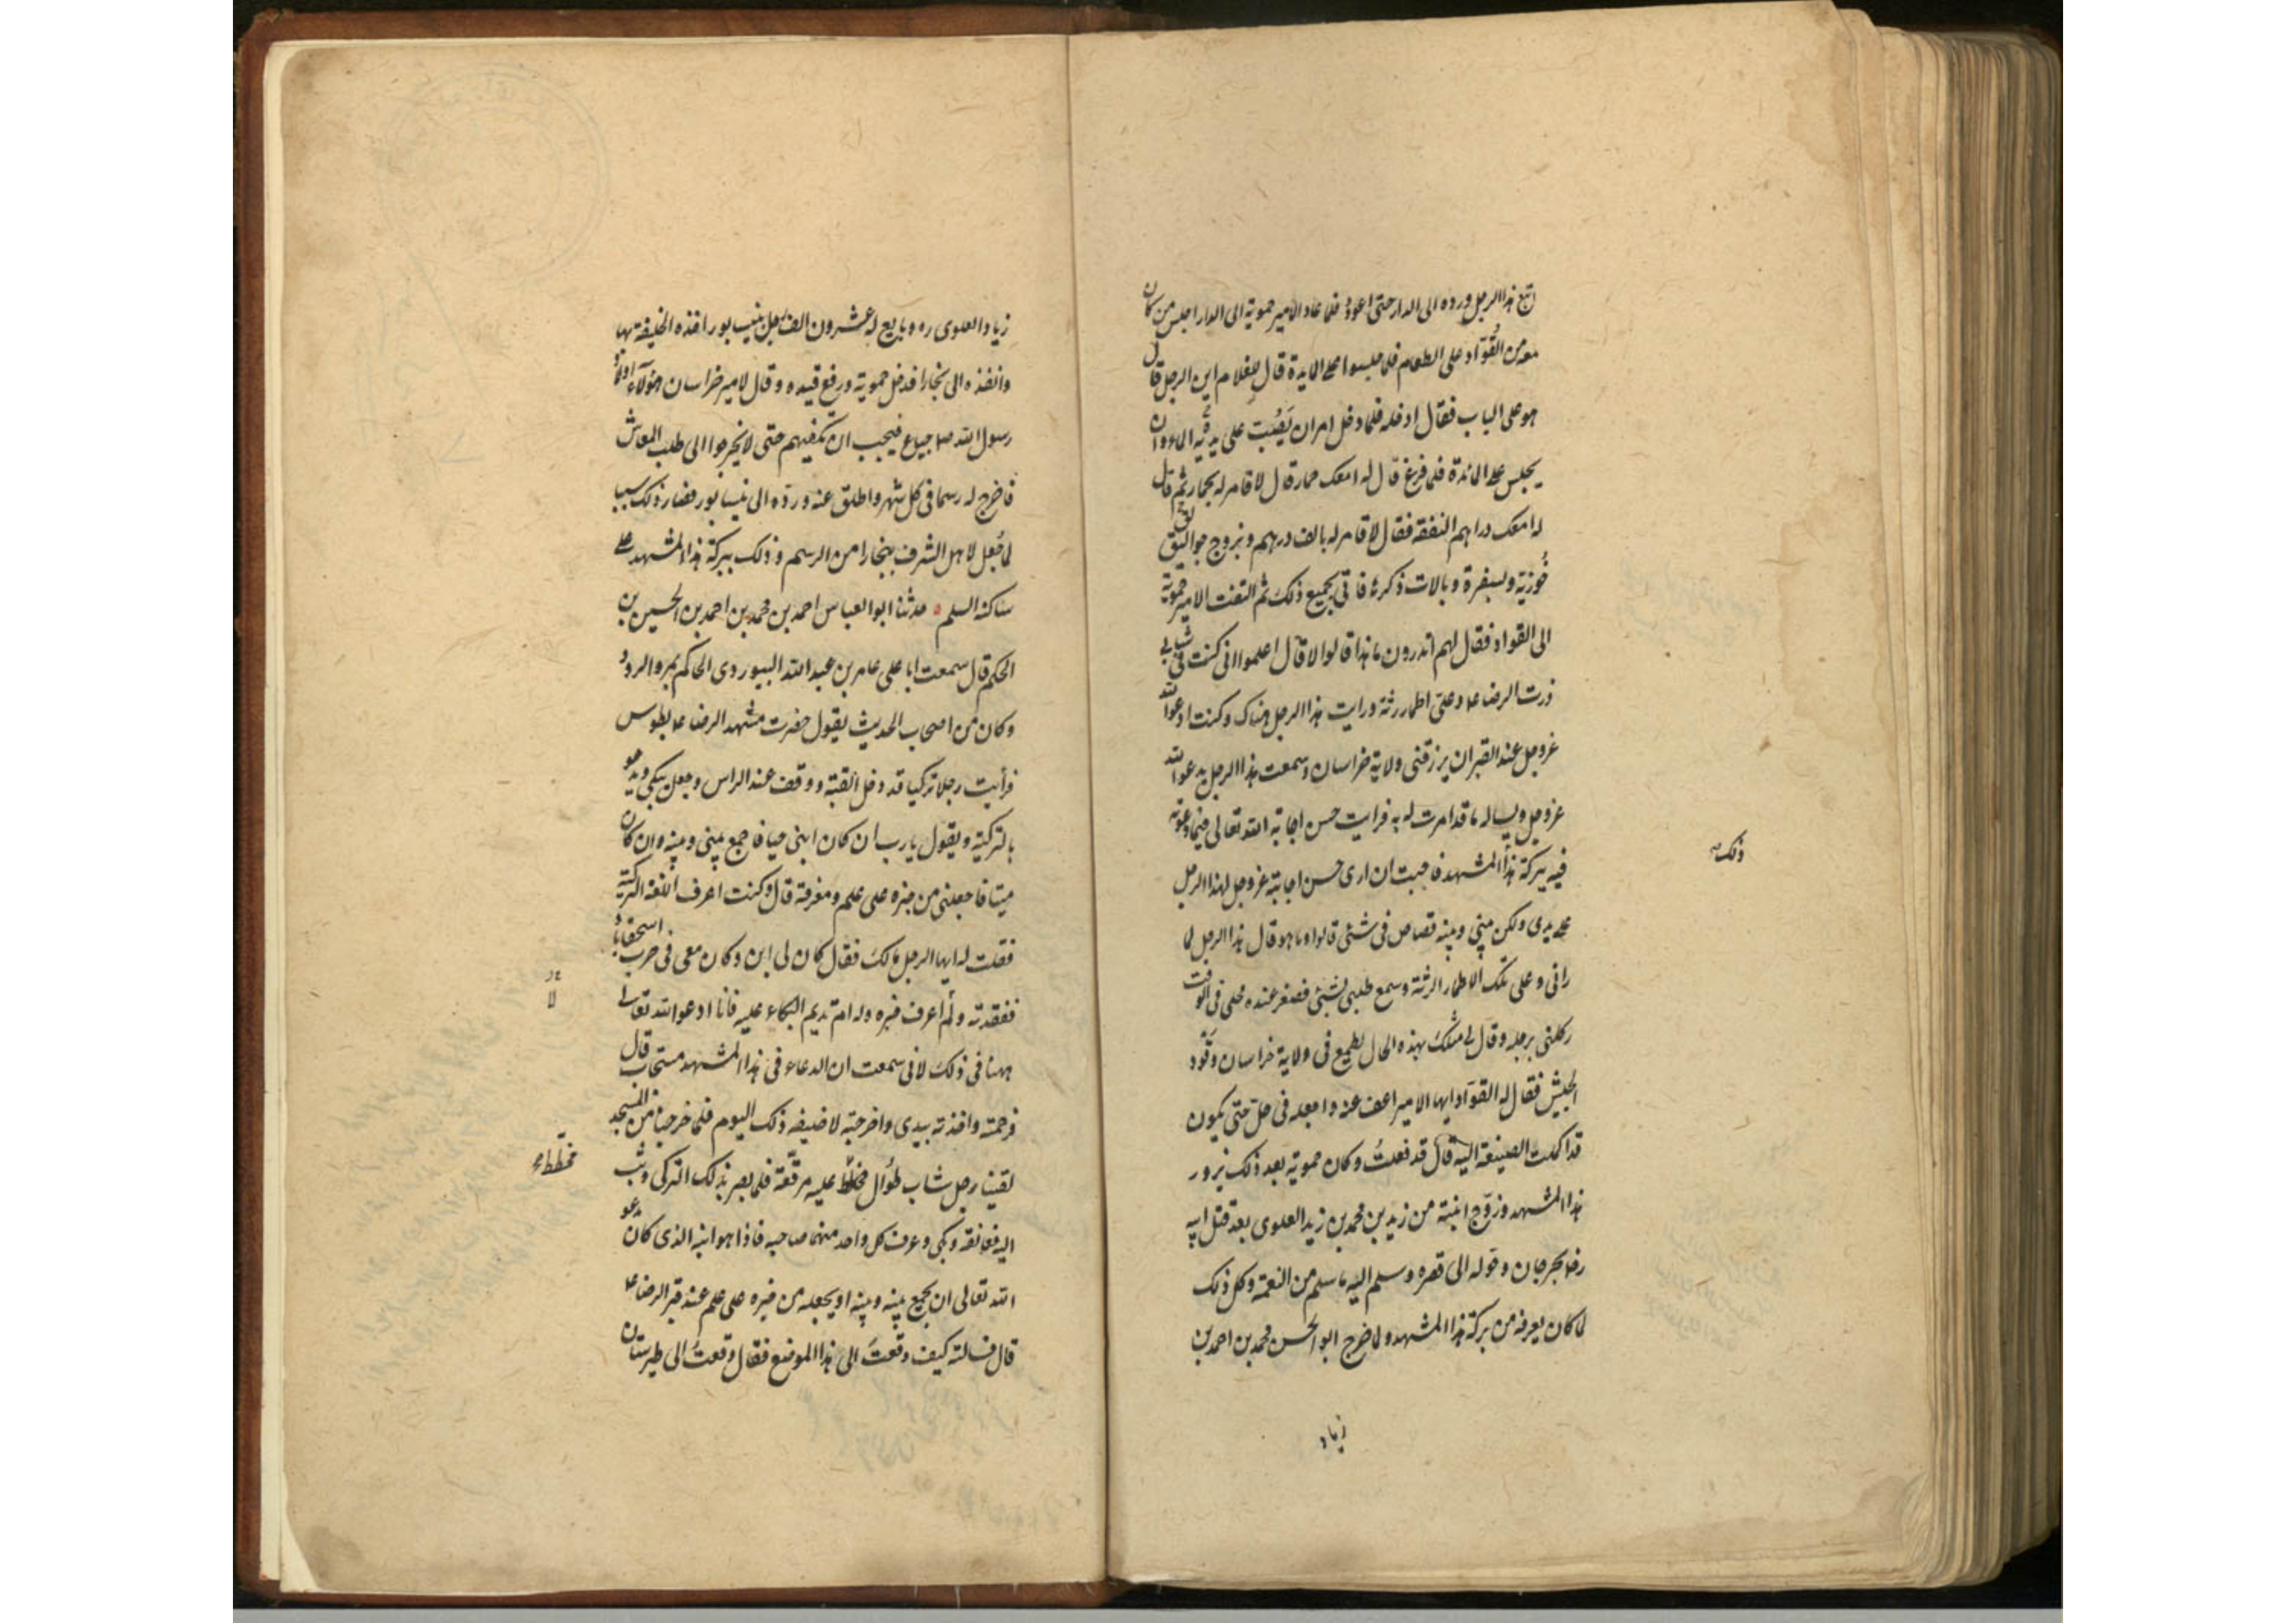 اتبع هذا الرجل ورده الى الدار حتى اعود فلما عاد الامير حمويه الى الدار اجلس من كان
معه من القُوّاد على الطعام فلما جلسوا على المايدة قال لغلام اين الرجل قال
هو على الباب فقال ادخله فلما دخل امر ان يَصُبَّ على يديه الماء وان
يجلس على المائدة فلما فرغ قال له امعك حمار قال لا فامر له بحمار ثم قال
له امعك دراهم النفقة فقال لا فامر له بالف درهم وبزوج جواليق
خُوزية وبسفرة وبالات ذكرها فاتى بجميع ذلك ثم التفت الامير حموية
الى القواد فقال لهم اتدرون ما هذا قالوا لا قال اعلموا انى كنت فى شبابى
زرت الرضا ع وعلىّ اطمار رثة ورايت هذا الرجل هناك وكنت ادعوا الله
عزوجل عند القبر ان يرزقنى ولاية خراسان وسمعت هذا الرجل يدعوا الله
عزوجل ويساله ما قد امرت له به فرايت حسن اجابة الله تعالى فيما دعوته
فيه ببركة هذا المشهد فاحببت ان ارى حسن اجابته عزوجل لهذا الرجل
ذلك
على يدى ولكن بينى وبينه قصاص فى شئى قالوا وما هو قال هذا الرجل لما
رانى وعلى تلك الاطمار الرثة وسمع طلبى لشئى فصغر عنده محلى فى الوقت
ركلنى برجله وقال لى مثلك بهذه الحال يطمع فى ولاية خراسان وقَود
الجيش فقال له القوّاد ايها الامير اعف عنه واجعله فى حلّ حتى يكون
قد اكملت الصنيعة اليه قال قد فعلتُ وكان حموية بعد ذلك يزور
هذا المشهد وزوّج ابنته من زيد بن محمد بن زيد العلوى بعد قتل ابيه
رضا بجرجان وحوله الى قصره وسلم اليه ما سلم من النعمة وكل ذلك
لما كان يعرفه من بركة هذا المشهد ولما خرج ابو الحسن محمد بن احمد بن
زياد
زياد العلوى ره وبايع له عشرون الف رجل بنيسابور اخذه الخليفة بها
وانفذه الى بخارا فدخل حموية ورفع قيده وقال لامير خراسان هؤلاء اولاد
رسول الله صا جياع فيجب ان تكفيهم حتى لا يخرجوا الى طلب المعاش
فاخرج له رسما فى كل شهر واطلق عنه وردّه الى نيسابور فصار ذلك سببا
لما جُعل لاهل الشرف ببخارا من الرسم وذلك ببركة هذا المشهد على
ساكنه السلم ه حدثنا ابو العباس احمد بن محمد بن احمد بن الحسين بن
الحكم قال سمعت ابا على عامر بن عبد الله البيوردى الحاكم بمرو الرود
وكان من اصحاب الحديث يقول حضرت مشهد الرضا ع بطوس
فرأيت رجلا تركيا قد دخل القبّة ووقف عند الراس وجعل يبكى ويدعو
بالتركية ويقول يا رب ان كان ابنى حيا فاجمع بينى وبينه وان كان
ميتا فاجعلنى من خبره على علم ومعرفة قال وكنت اعرف اللغة التركية
فقلت له ايها الرجل مالك فقال كان لى ابن وكان معى فى حرب اسحقاباد
ففقدته ولم اعرف خبره وله ام تديم البكاء عليه فانا ادعوا الله تعالى
لا
ههنا فى ذلك لانى سمعت ان الدعاء فى هذا المشهد مستجاب قال
فرحمته واخذته بيدى واخرجته لاضيفه ذلك اليوم فلما خرجنا من المسجد
لقينا رجل شاب طُوال مخطّط عليه مرقّعة فلما بصر بذلك التركى وثب
مخطّط
اليه فعانقه وبكى وعرف كل واحد منهما صاحبه فاذا هو ابنه الذى كان يدعو
الله تعالى ان يجمع بينه وبينه او يجعله من خبره على علم عند قبر الرضا ع
قال فسالته كيف وقعتَ الى هذا الموضع فقال وقعتُ الى طبرستان